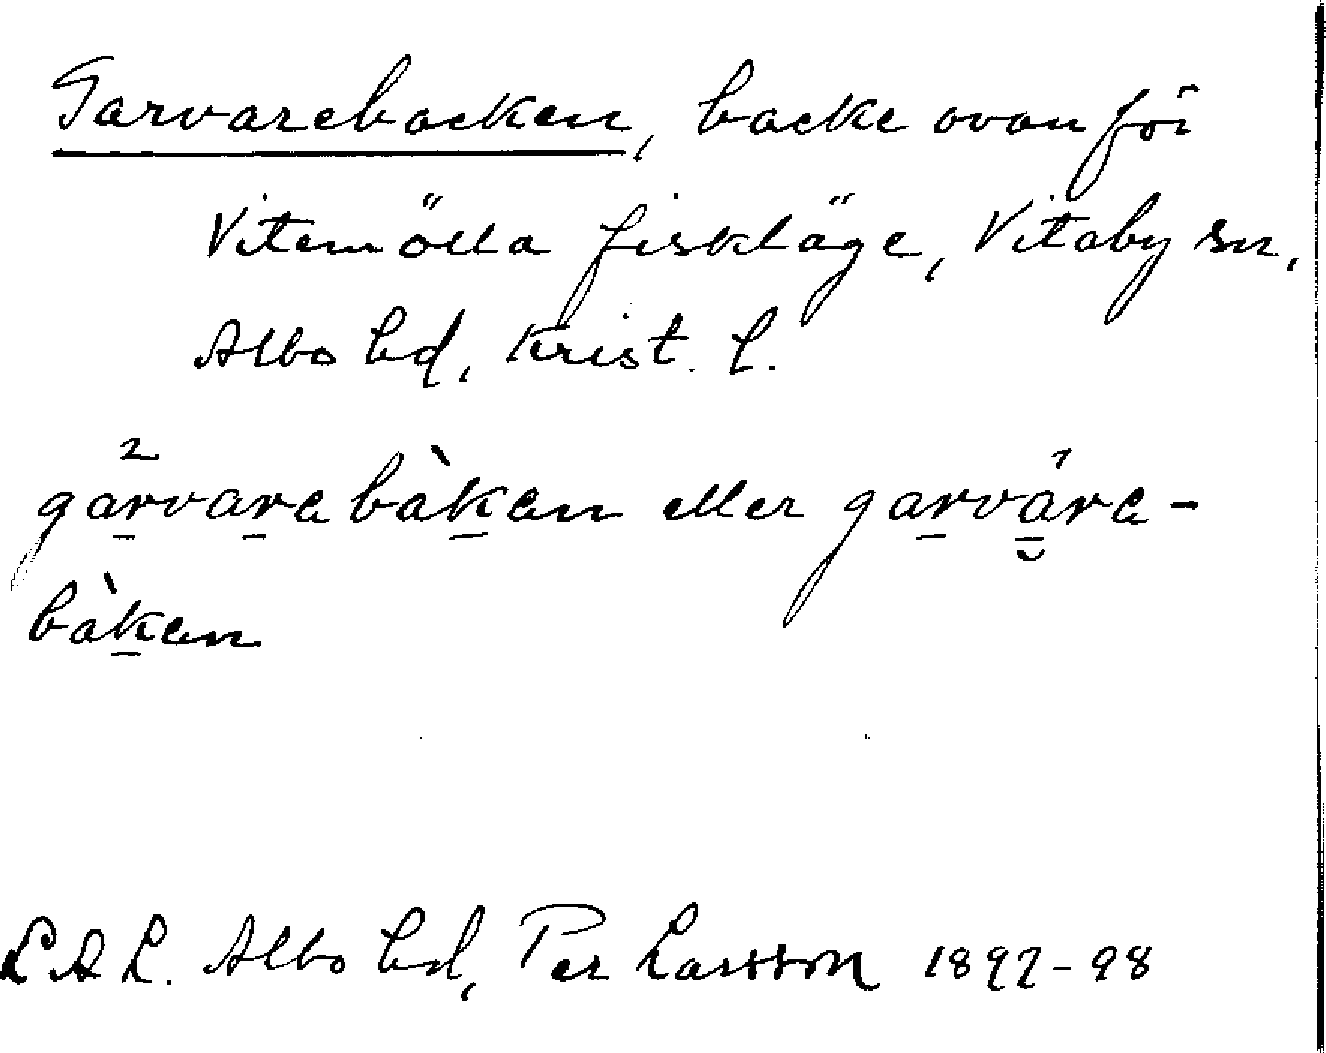 Garvarebacken, backe ovanför
Vitemölla fiskläge, Vitaby sn,
Albo hd, Krist. l.
garvarebàken eller garvare-
bàken
L A L. Albo hd, Per Larsson 1897-98